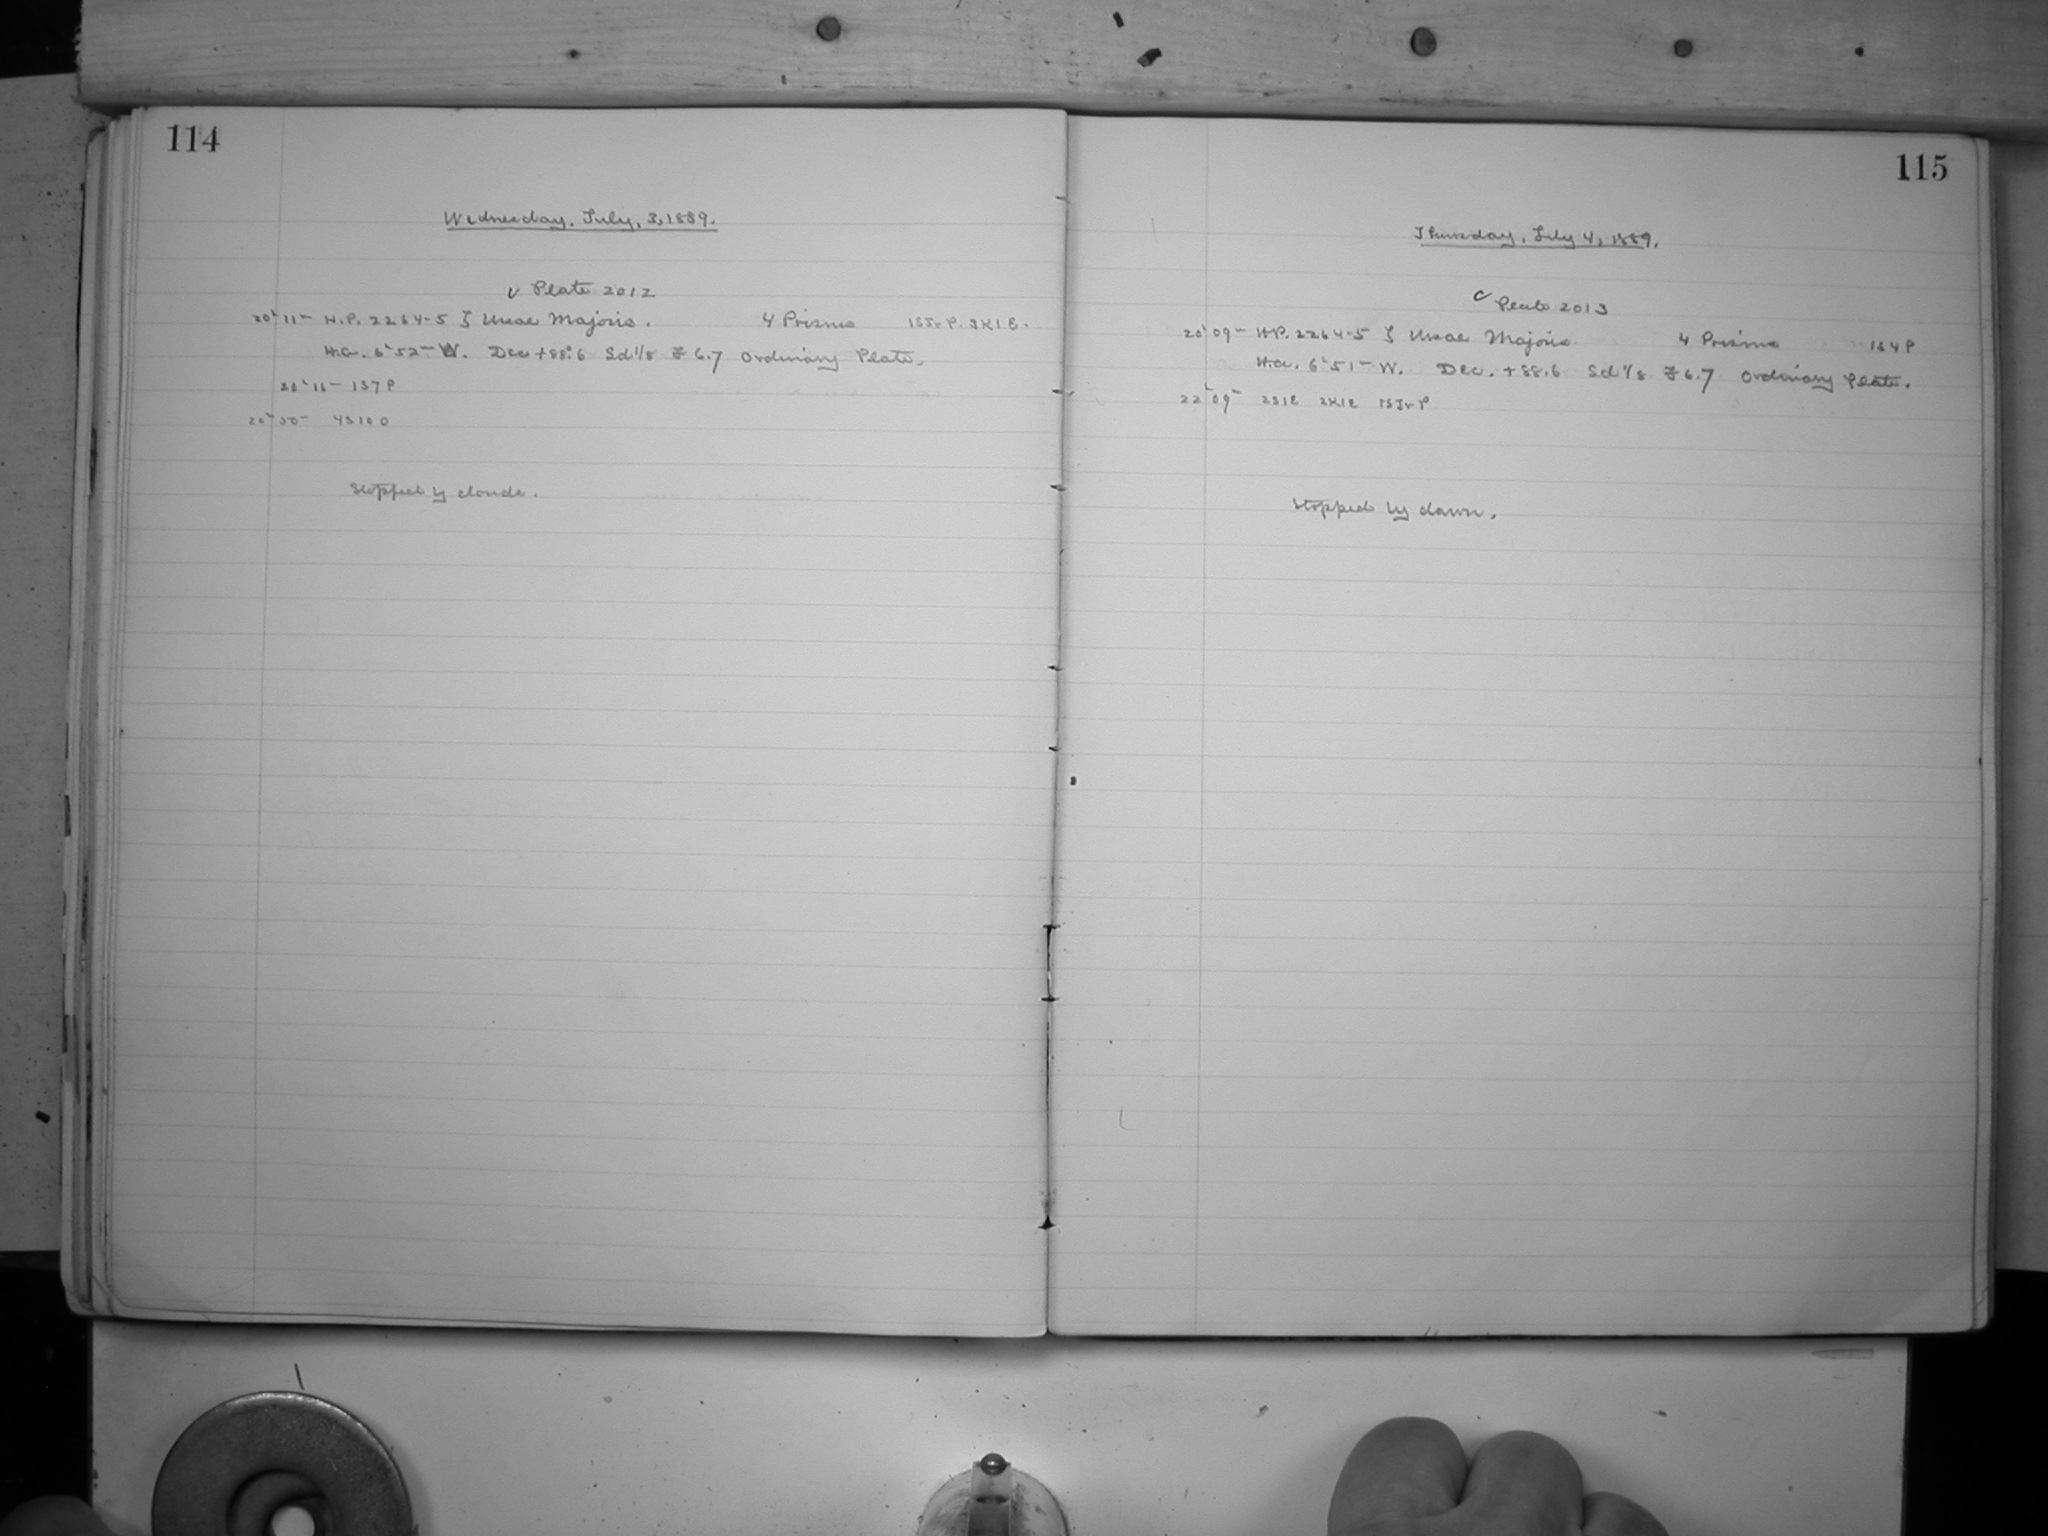 114
Wednesday, July, 3, 1889.
✓ Plate 2012
20h 11m H.P. 2264-5 ζ Ursae Majoris. 4 Prisms
H.a. 6h 52m W. Dec +88°.6 Sd 1/8 F 6.7 Ordinary Plate.
1S7P
4S10O
Stopped by clouds.
115
Thursday, July 4, 1889.
Plate 2013
20h 09m H.P. 2264-5 ζ Ursae Majoris. 4 Prisms 1S4P
H.a. 6h 51m W. Dec. +88.6 Sd 1/8 F 6.7 Ordinary Plate.
22h 09m 2S1E 2K1E
Stopped by dawn.